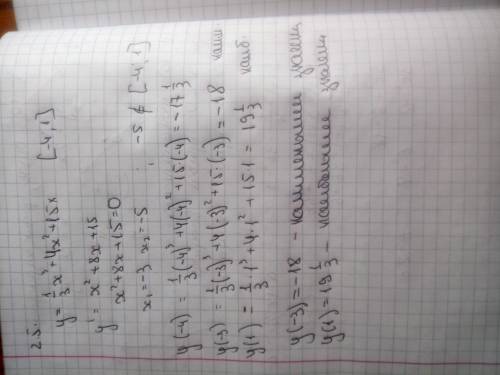 25.
y = 1/3 x³ + 4x² + 15x [-4, 1]
y' = x² + 8x + 15
x² + 8x + 15 = 0
x₁ = -3 x₂ = -5 ; -5 ∉ [-4, 1]
y(-4) = 1/3 (-4)³ + 4(-4)² + 15·(-4) = -17 1/3
y(-3) = 1/3 (-3)³ + 4(-3)² + 15·(-3) = -18 наим.
y(1) = 1/3 1³ + 4·1² + 15·1 = 19 1/3 наиб.
y(-3) = -18 - наименьшее значени
y(1) = 19 1/3 - наибольшее значени